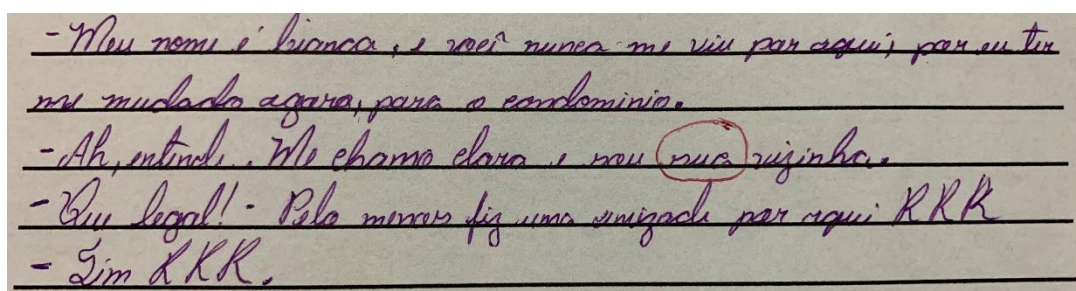 - Meu nome é bianca, e você nunca me viu por aqui, por eu ter
me mudado agora, para o condominio.
- Ah, entendi. Me chamo clara e sou sua vizinha.
- Que legal! - Pelo menos fiz uma amizade por aqui KKK
- Sim KKK.